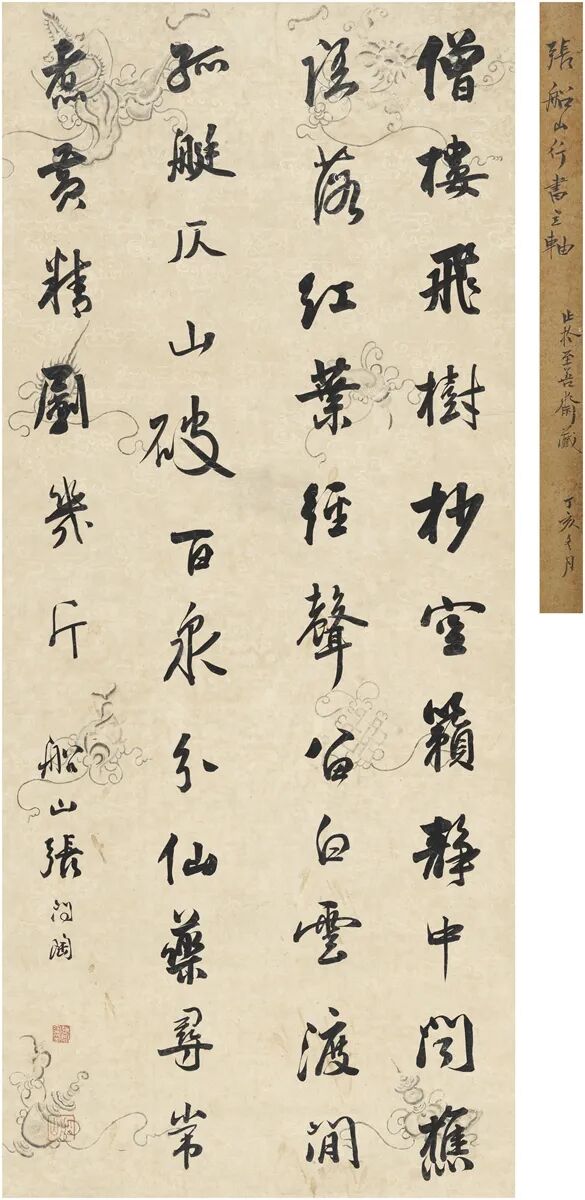 張船山行書立軸
止於至善齋藏 丁亥冬月
僧樓飛樹杪空籟靜中聞樵
語落紅葉經聲留白雲渡澗
孤艇仄山破百泉分仙藥尋常
煮黃精劚幾斤 船山張問陶